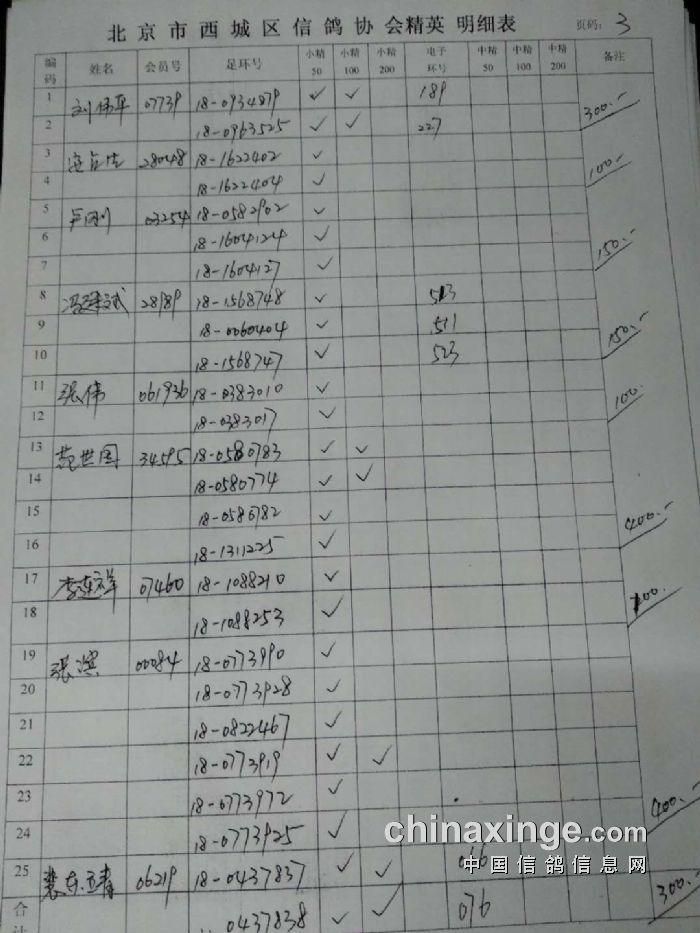 北京市西城区信鸽协会精英 明细表 页码: 3
编码 姓名 会员号 足环号 小精50 小精100 小精200 电子环号 中精50 中精100 中精200 备注
1 刘伟军 07739 18-0934879 ✓ ✓ 189
2 18-0963525 ✓ ✓ 227 300.-
3 28048 18-1622402 ✓
4 18-1622404 ✓ 100.-
5 卢刚 03254 18-0582902 ✓
6 18-1604124 ✓
7 18-1604127 ✓ 150.-
8 28989 18-1568748 ✓ 513
9 18-0060404 ✓ 511
10 18-1568747 ✓ 523 150.-
11 张伟 061936 18-0383010 ✓
12 18-0383017 ✓ 100.
13 范世国 34595 18-0580783 ✓ ✓
14 18-0580774 ✓ ✓
15 18-0580782 ✓
16 18-1311225 ✓ 400.-
17 李连祥 07460 18-1088210 ✓
18 18-1088253 ✓ 100.
19 张滨 00084 18-0773990 ✓
20 18-0773928 ✓
21 18-0822467 ✓
22 18-0773919 ✓ ✓
23 18-0773972 ✓
24 18-0773925 ✓ 400.-
25 06219 18-0437837 ✓ ✓
合计 0437838 ✓ ✓ 076 300.-
chinaxinge.com
中国信鸽信息网